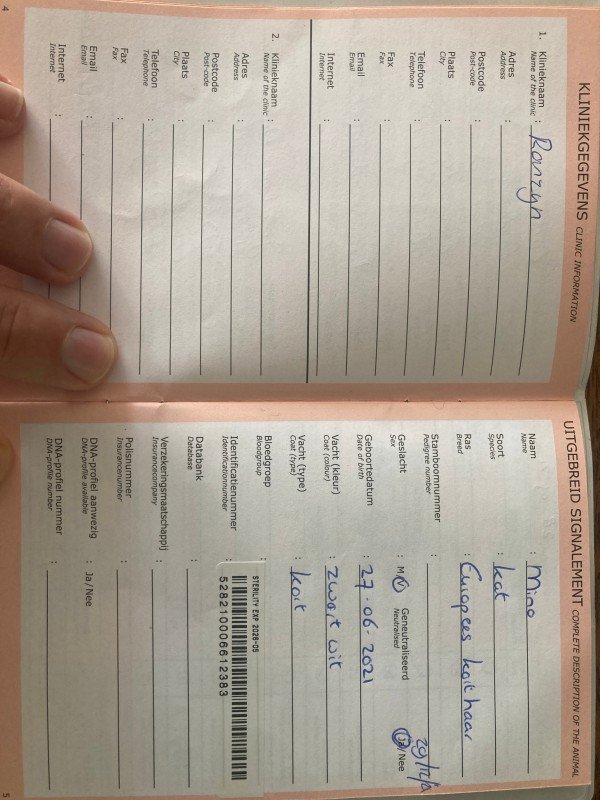 KLINIEKGEGEVENS CLINIC INFORMATION
1. Klinieknaam : Ranzijn
Name of the clinic
Adres :
Address
Postcode :
Post-code
Plaats :
City
Telefoon :
Telephone
Fax :
Fax
Email :
Email
Internet :
Internet
2. Klinieknaam :
Name of the clinic
Adres :
Address
Postcode :
Post-code
Plaats :
City
Telefoon :
Telephone
Fax :
Fax
Email :
Email
Internet :
Internet
4
UITGEBREID SIGNALEMENT COMPLETE DESCRIPTION OF THE ANIMAL
Naam : Mino
Name
Soort : kat
Species
Ras : Europees korthaar
Breed
Stamboomnummer :
Pedigree number
29/12/21
Geslacht : M/V Geneutraliseerd Ja/Nee
Sex Neutralised
Geboortedatum : 27-06-2021
Date of birth
Vacht (kleur) : zwart wit
Coat (colour)
Vacht (type) : kort
Coat (type)
Bloedgroep :
Bloodgroup
STERILITY EXP 2026-05
Identificatienummer :
Identificationnumber
528210006612383
Databank :
Database
Verzekeringsmaatschappij :
Insurancecompany
Polisnummer :
Insurancenumber
DNA-profiel aanwezig : Ja/Nee
DNA-profile available
DNA-profiel nummer :
DNA-profile number
5